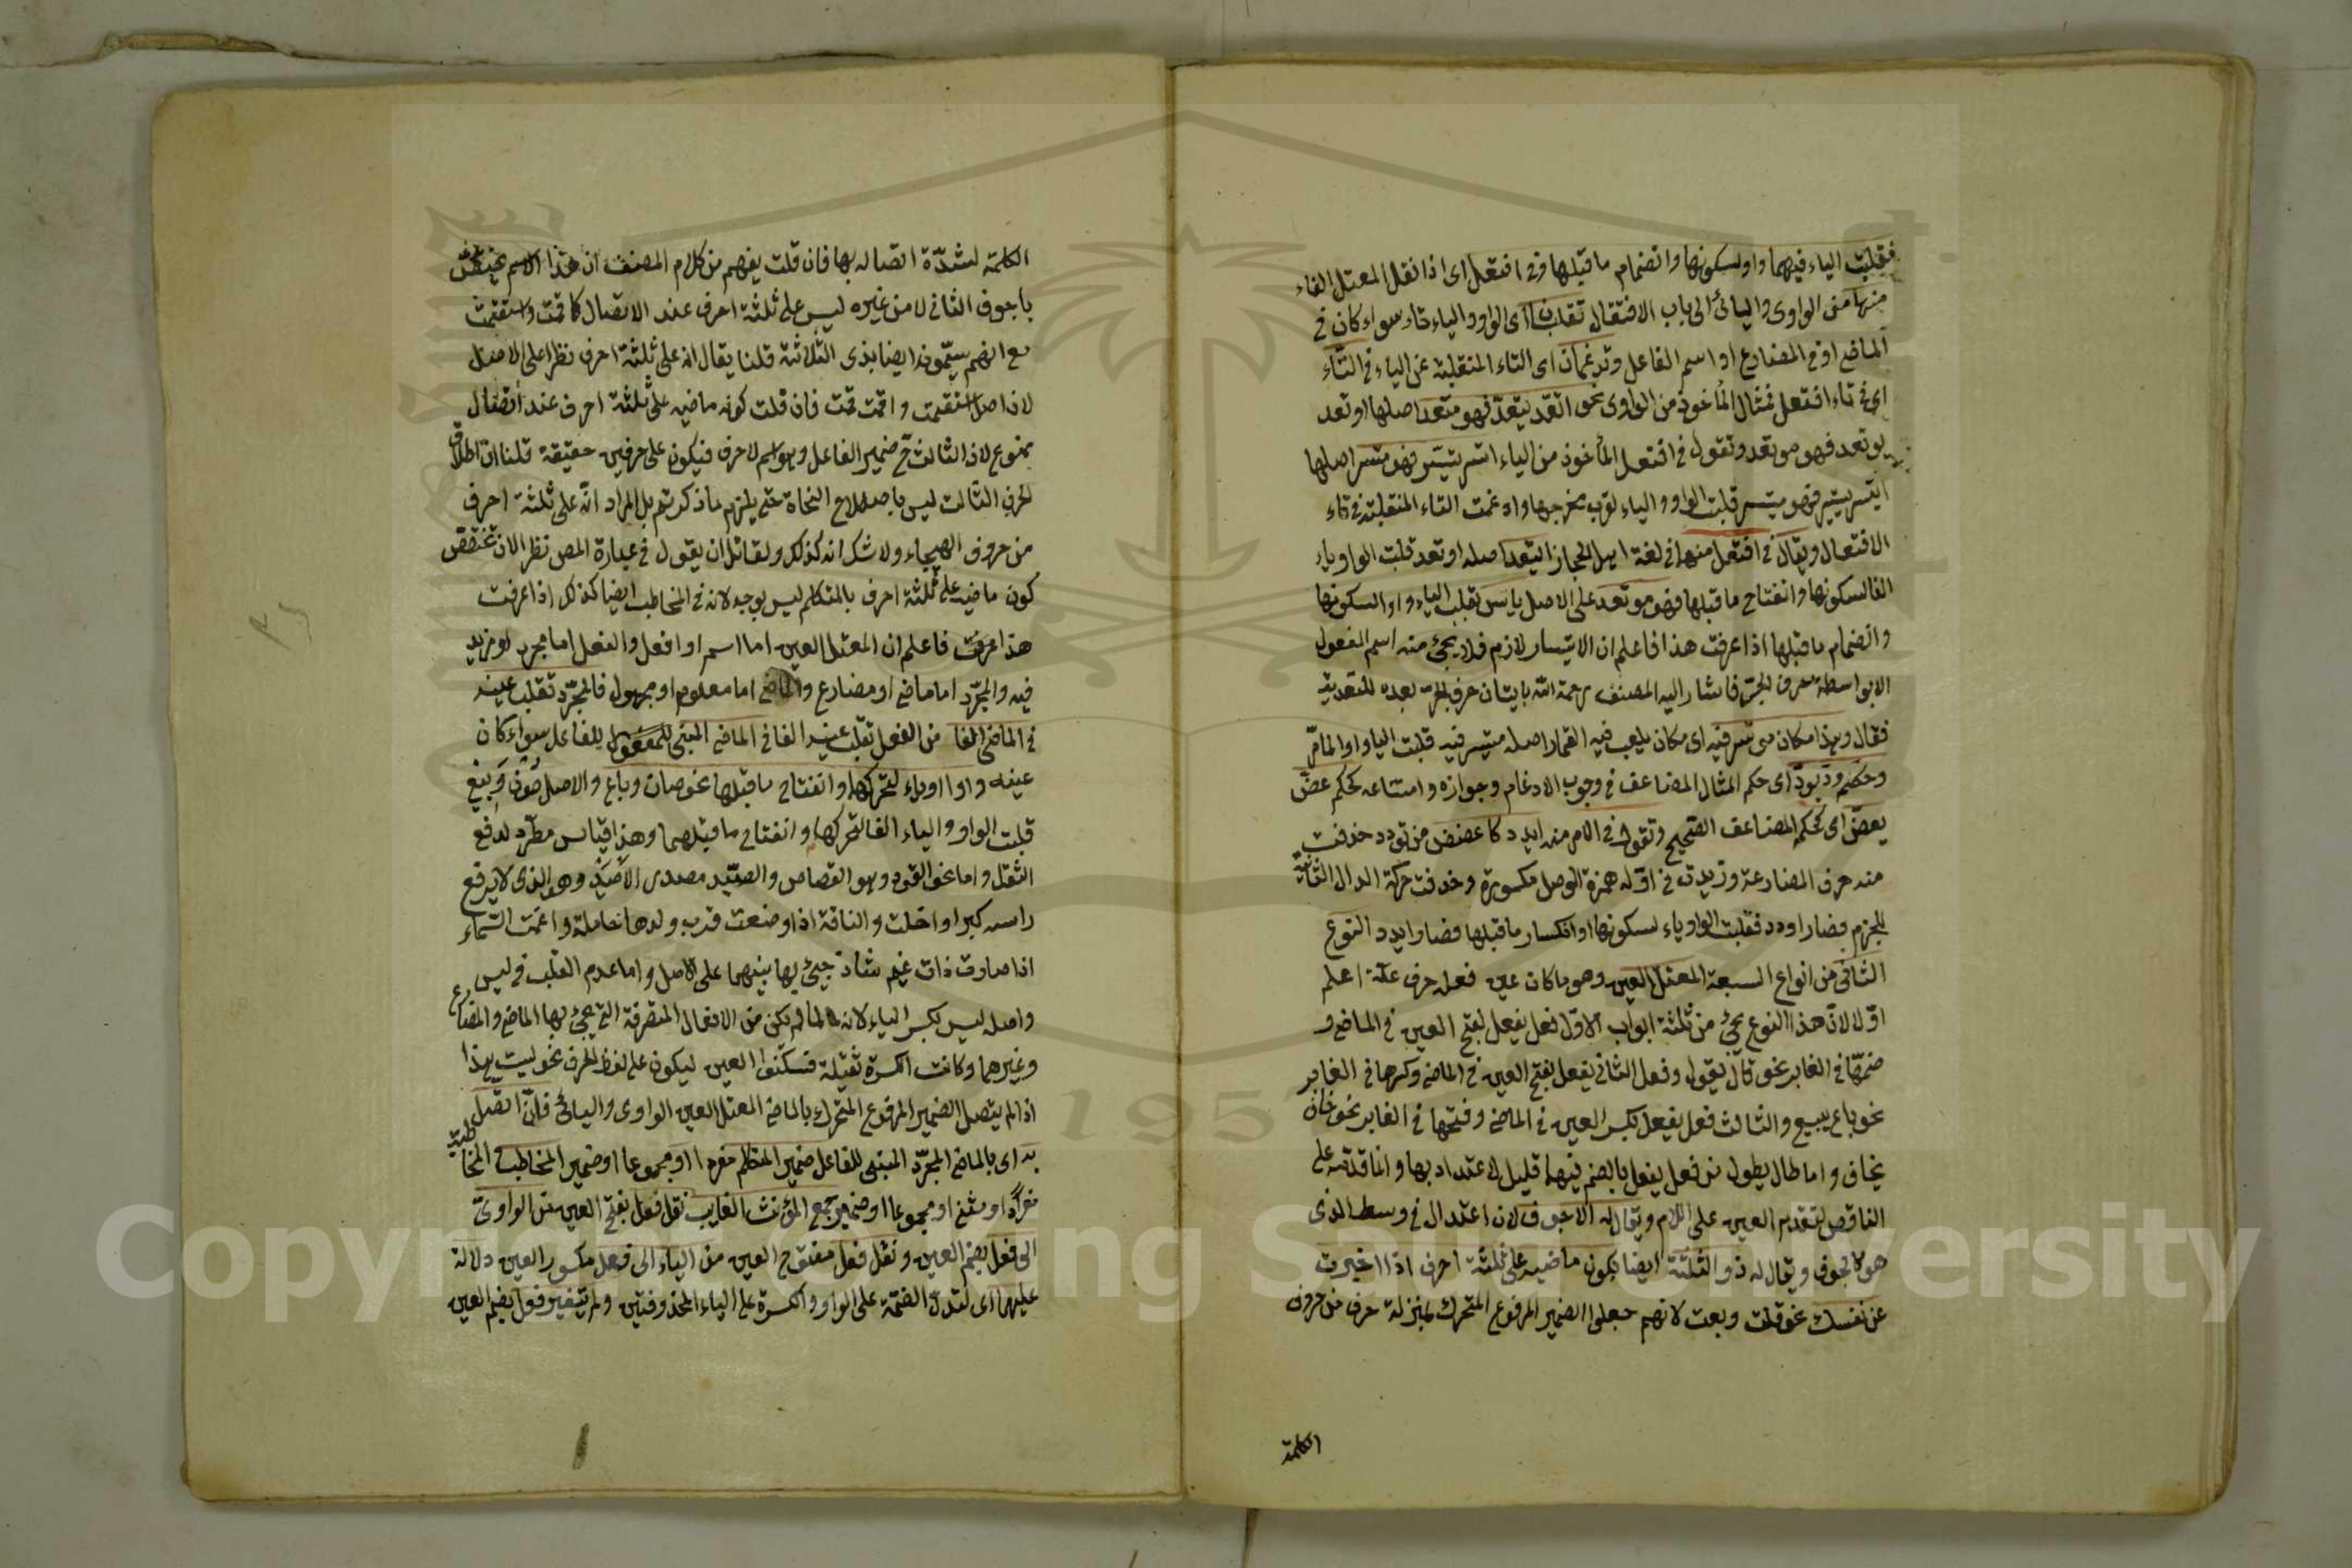 فقلبت الياء فيهما واو لسكونها وانضمام ما قبلها وفي افتعل اى اذا نقل المعتل الفاء
منها من الواوى واليائى الى باب الافتعال تقلبان اى الواو والياء تاء سواء كان فى
الماضى او فى المضارع او اسم الفاعل وتدغمان اى التاء المنقلبة عن الياء فى التاء
اى فى تاء افتعل فمثال المأخوذ من الواوى نحو اتعد يتعد فهو متعد اصلها اوتعد
يوتعد فهو موتعد وتقول فى افتعل المأخوذ من الياء اتسر يتسر فهو متسر اصلها
ايتسر ييتسر فهو ميتسر قلبت الواو والياء لقرب مخرجها وادغمت التاء المنقلبة فى تاء
الافتعال ويقال فى افتعل منها فى لغة اهل الحجاز ايتعد اصله اوتعد قلبت الواو ياء
الفا لسكونها وانفتاح ما قبلها فهو موتعد على الاصل ياتسر تقلب الياء واوا لسكونها
وانضمام ما قبلها اذا عرفت هذا فاعلم ان الايتسار لازم فلا يجئ منه اسم المفعول
الا بواسطة حرف الجر فاشار اليه المصنف رحمة الله باتيان حرف الجر بعده للتعدية
فقال وهذا مكان موتسر فيه اى مكان يلعب فيه القمار اصله ميتسر فيه قلبت الياء واوا لما مر
وحكم ود يود اى حكم المثال المضاعف فى وجوب الادغام وجوازه وامتناعه كحكم عض
يعض اى كحكم المضاعف الصحيح وتقول فى الامر منه ايدد كاعضض من تودد حذفت
منه حرف المضارعة وزيدت فى اوله همزة الوصل مكسورة وحذفت حركة الدال الثانية
للجزم فصار اودد فقلبت الواو ياء لسكونها وانكسار ما قبلها فصار ايدد النوع
الثانى من انواع السبعة المعتل العين وهو ما كان عين فعله حرف علة اعلم
اولا لان هذا النوع يجئ من ثلثة ابواب الاول فعل يفعل بفتح العين فى الماضى و
ضمها فى الغابر نحو قال يقول وفعل الثانى يفعل بفتح العين فى الماضى وكسرها فى الغابر
نحو باع يبيع والثالث فعل يفعل بكسر العين فى الماضى وفتحها فى الغابر نحو خاف
يخاف واما طال يطول من فعل يفعل بالضم فيهما قليل لا اعتداد بها وانما قدمه على
الناقص لتقدم العين على اللام ويقال له الاجوف لان اعتدال فى وسط الذى
هو كالجوف ويقال له ذو الثلثة ايضا لكون ماضيه على ثلثة احرف اذا اخبرت
عن نفسك نحو قلت وبعت لانهم جعلوا الضمير المرفوع المتحرك بمنزلة حرف من حروف
الكلمة
الكلمة لشدة اتصاله بها فان قلت يفهم من كلام المصنف ان هذا الاسم يختص
باجوف الثانى لا من غيره ليس على ثلثة احرف عند الاتصال كاقمت واستقمت
مع انهم يسمونه ايضا بذى الثلاثة قلنا يقال انه على ثلثة احرف نظرا على الاصل
لان اصل استقمت واقمت قمت فان قلت كونه ماضيه على ثلثة احرف عند اتصال
ممنوع لان الثالث ح ضمير الفاعل وهو اسم لا حرف فيكون على حرفين حقيقة قلنا ان اطلاق
الحرف الثالث ليس باصطلاح النحاة حتى يلزم ما ذكرتم بل المراد انه على ثلثة احرف
من حروف الهجاء ولا شك انه كذلك ولقائل ان يقول فى عبارة المص نظر لان تخصص
كون ماضيه على ثلثة احرف بالمتكلم ليس بوجه لانه فى المخاطب ايضا كذلك اذا عرفت
هذا عرفت فاعلم ان المعتل العين اما اسم او افعل والفعل اما مجرد او مزيد
فيه والمجرد اما ماضى او مضارع والماضى اما معلوم او مجهول فالمجرد تقلب عينه
فى الماضى الفا من الفعل تقلب عينه الفا فى الماضى المبنى للمفعول للفاعل سواء كان
عينه واوا او ياء لتحركها وانفتاح ما قبلها نحو صان وباع والاصل صون وبيع
قلبت الواو والياء الفا لتحركها وانفتاح ما قبلهما وهذا قياس مطرد لدفع
الثقل واما نحو القود وهو القصاص والصيد مصدر الاصيد وهو الذى لا يرفع
راسه كبرا واخلت والناقة اذا وضعت قرب ولدها حاملة واغمت السماء
اذا صارت ذات غيم شاذ جيئ بها بينهما على الاصل واما عدم القلب فى ليس
واصله ليس بكسر الياء لانه لما لم يكن من الافعال المتصرفة التى يجئ لها الماضى والمضارع
وغيرهما وكانت الكسرة ثقيلة فسكنوا العين ليكون على لفظ الحرف نحو ليت هذا
اذا لم يتصل الضمير المرفوع المتحرك بالماضى المعتل العين الواوى واليائى فان اتصل
به اى بالماضى المجرد المبنى للفاعل ضمير المتكلم مفردا او مجموعا او ضمير المخاطب فى المخاطبة
مفردا او مثنى او مجموعا او ضمير جمع المؤنث الغايب نقل فعل بفتح العين من الواوى
الى فعل بضم العين ونقل فعل مفتوح العين من الياء الى فعل مكسور العين دلالة
عليهما اى لتدل الضمة على الواو والكسرة على الياء المحذوفتين ولم يتغير فعل بضم العين